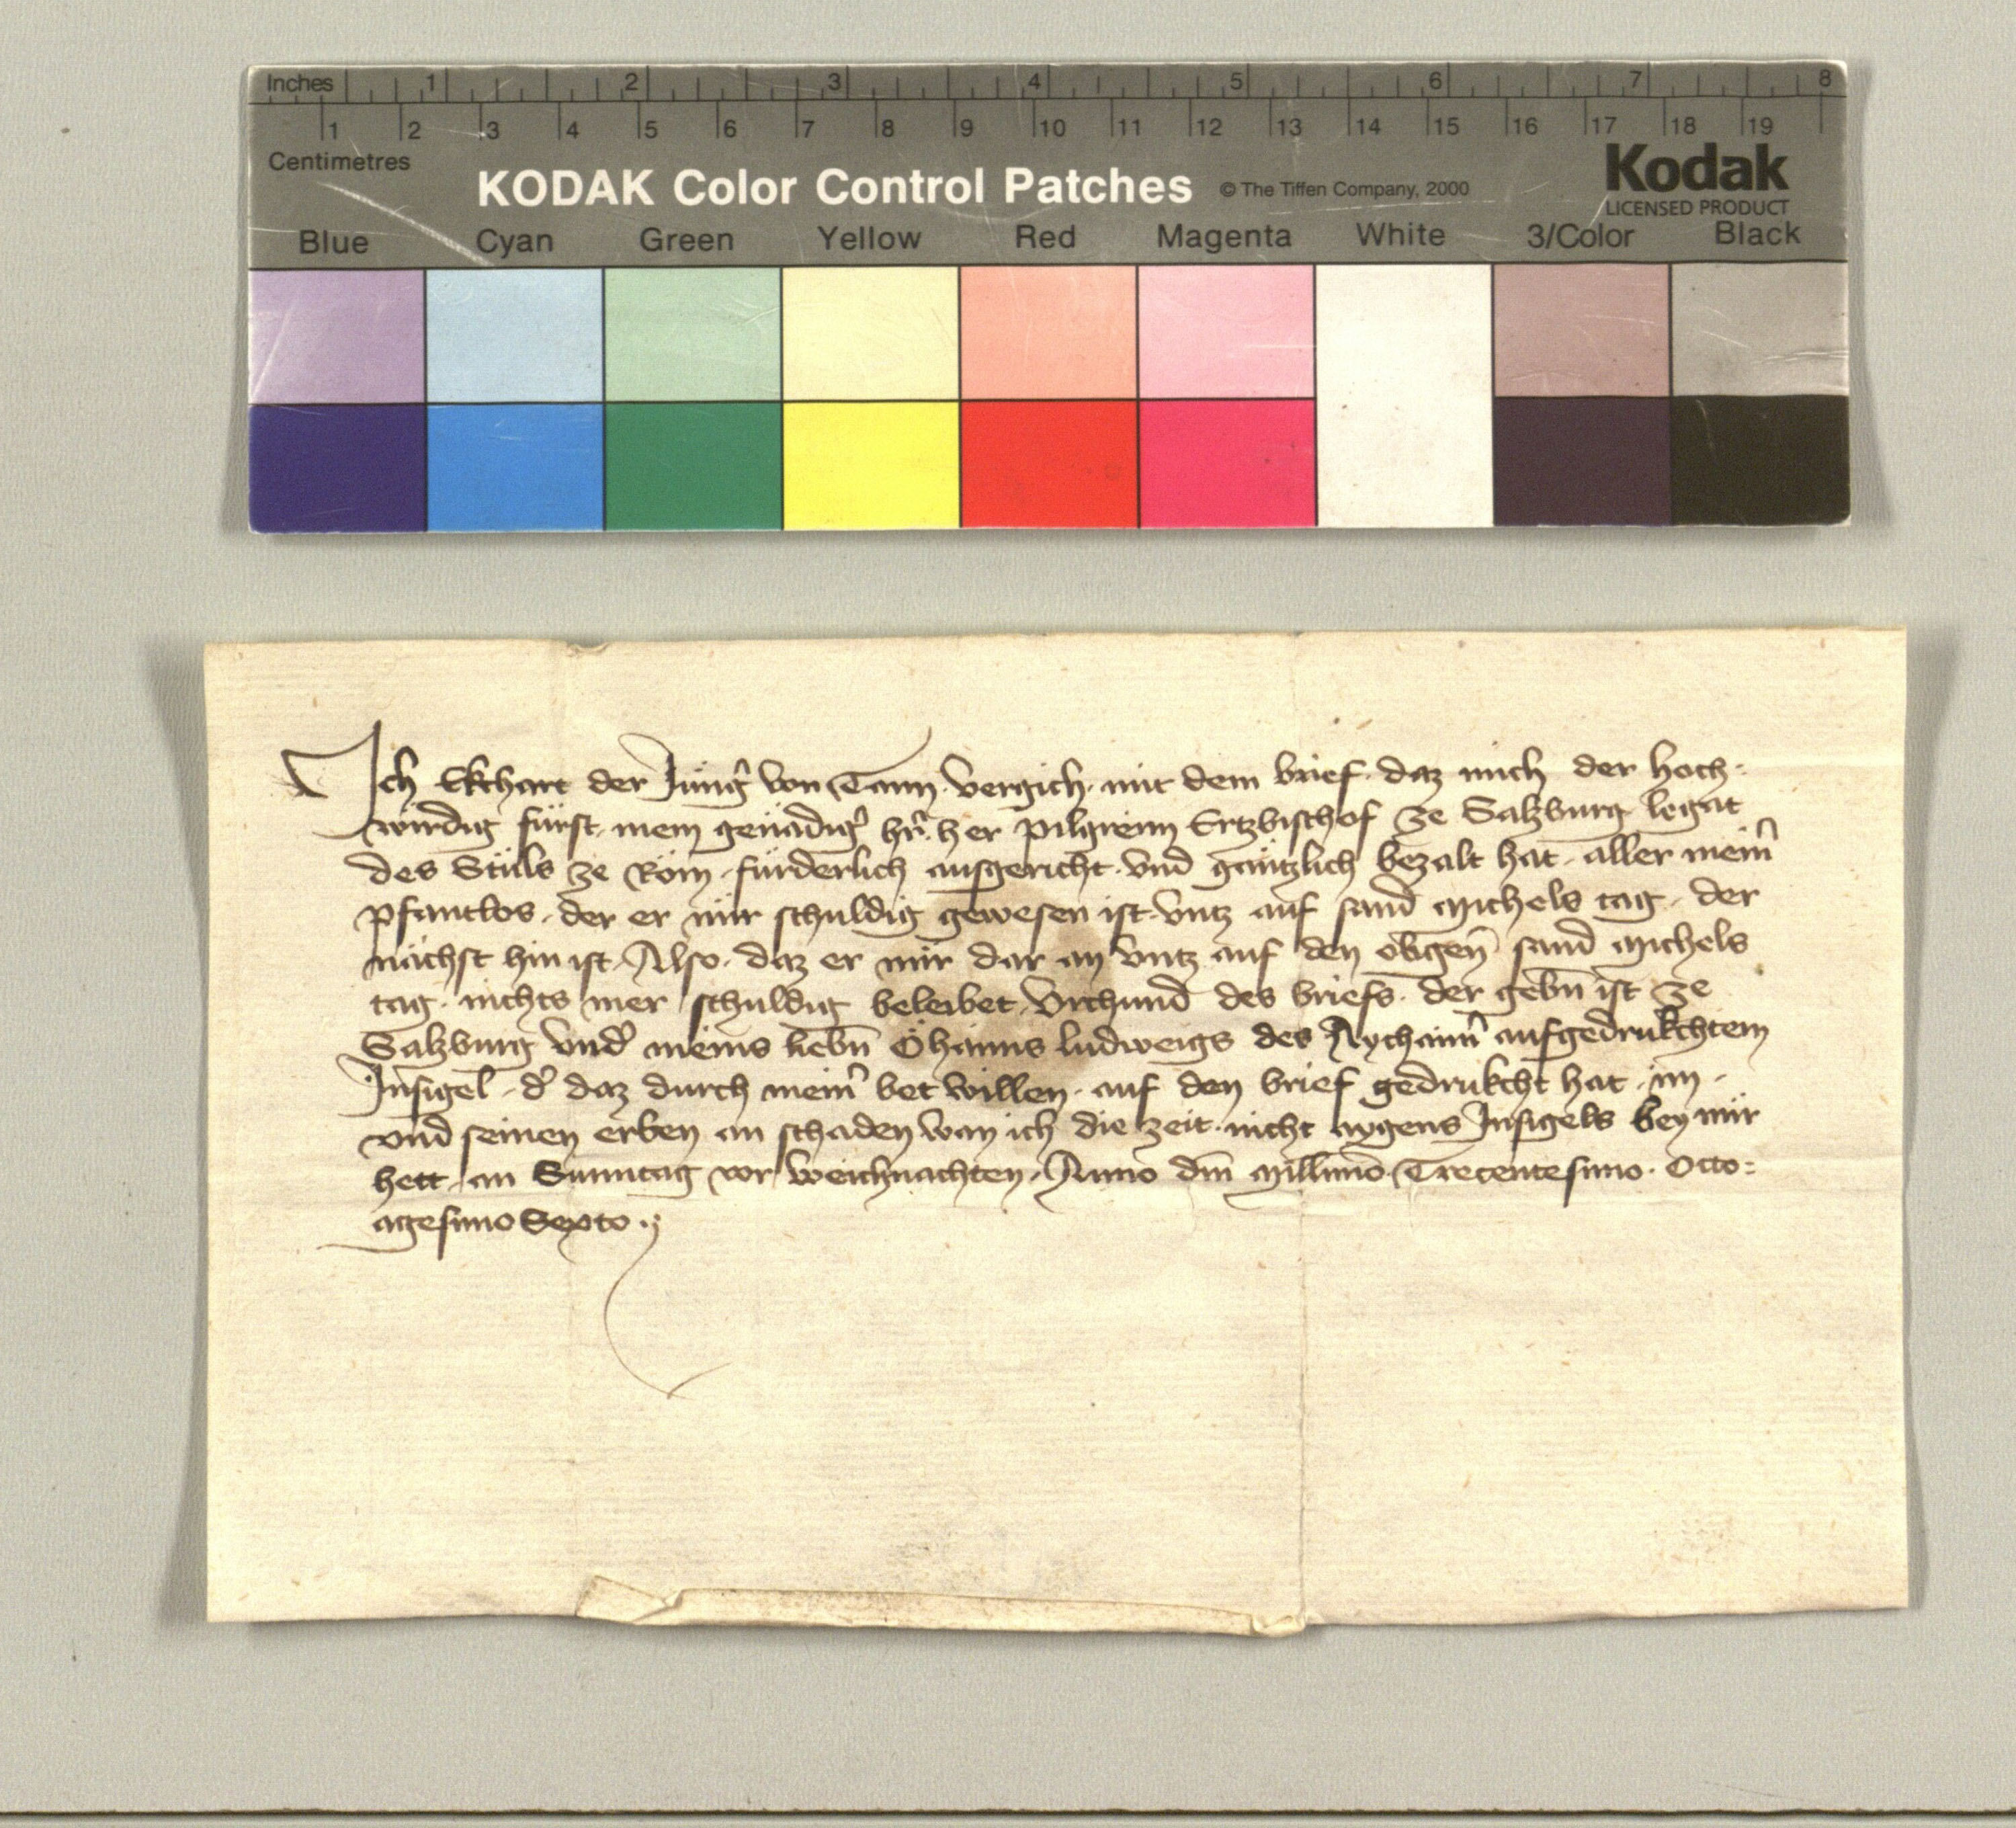 Inches 1 2 3 4 5 6 7 8
1 2 3 4 5 6 7 8 9 10 11 12 13 14 15 16 17 18 19
Centimetres
KODAK Color Control Patches © The Tiffen Company, 2000 Kodak
LICENSED PRODUCT
Blue Cyan Green Yellow Red Magenta White 3/Color Black
Ich Ekchart der Jüng̉ von Tann · vergich · mit dem brief · daz mich der hoch-
wirdig fürst · mein genädig̉ hr̃ · her Pilgreim Ertzbischof ze Salzburg legat
des Stüls ze Rom · fürderlich ausgericht · vnd gäntzlich bezalt hat · aller mein̉
pfantlos · der er mir schuldig gewesen ist · vntz auf sand Michels tag · der
nächst hin ist · Also · daz er mir dar an vntz auf den obgen̄ sand Michels
tag · nichts mer schuldig beleibet · Vrchund des briefs · der gebn̄ ist ze
Salzburg vnd̉ meins liebn̄ Öhaims ludweigs des Aychaim̉ aufgedrukchtem
Insigel · d̉ daz durch mein̉ bet willen · auf den brief gedrukcht hat · im ·
vnd seinen erben an schaden wan ich die zeit · nicht aygens Insigels bey mir
hett · an Sunntag vor weichnachten · Anno dm̄ Millm̄o · Trecentesimo · Octo-
agesimo Sexto ·